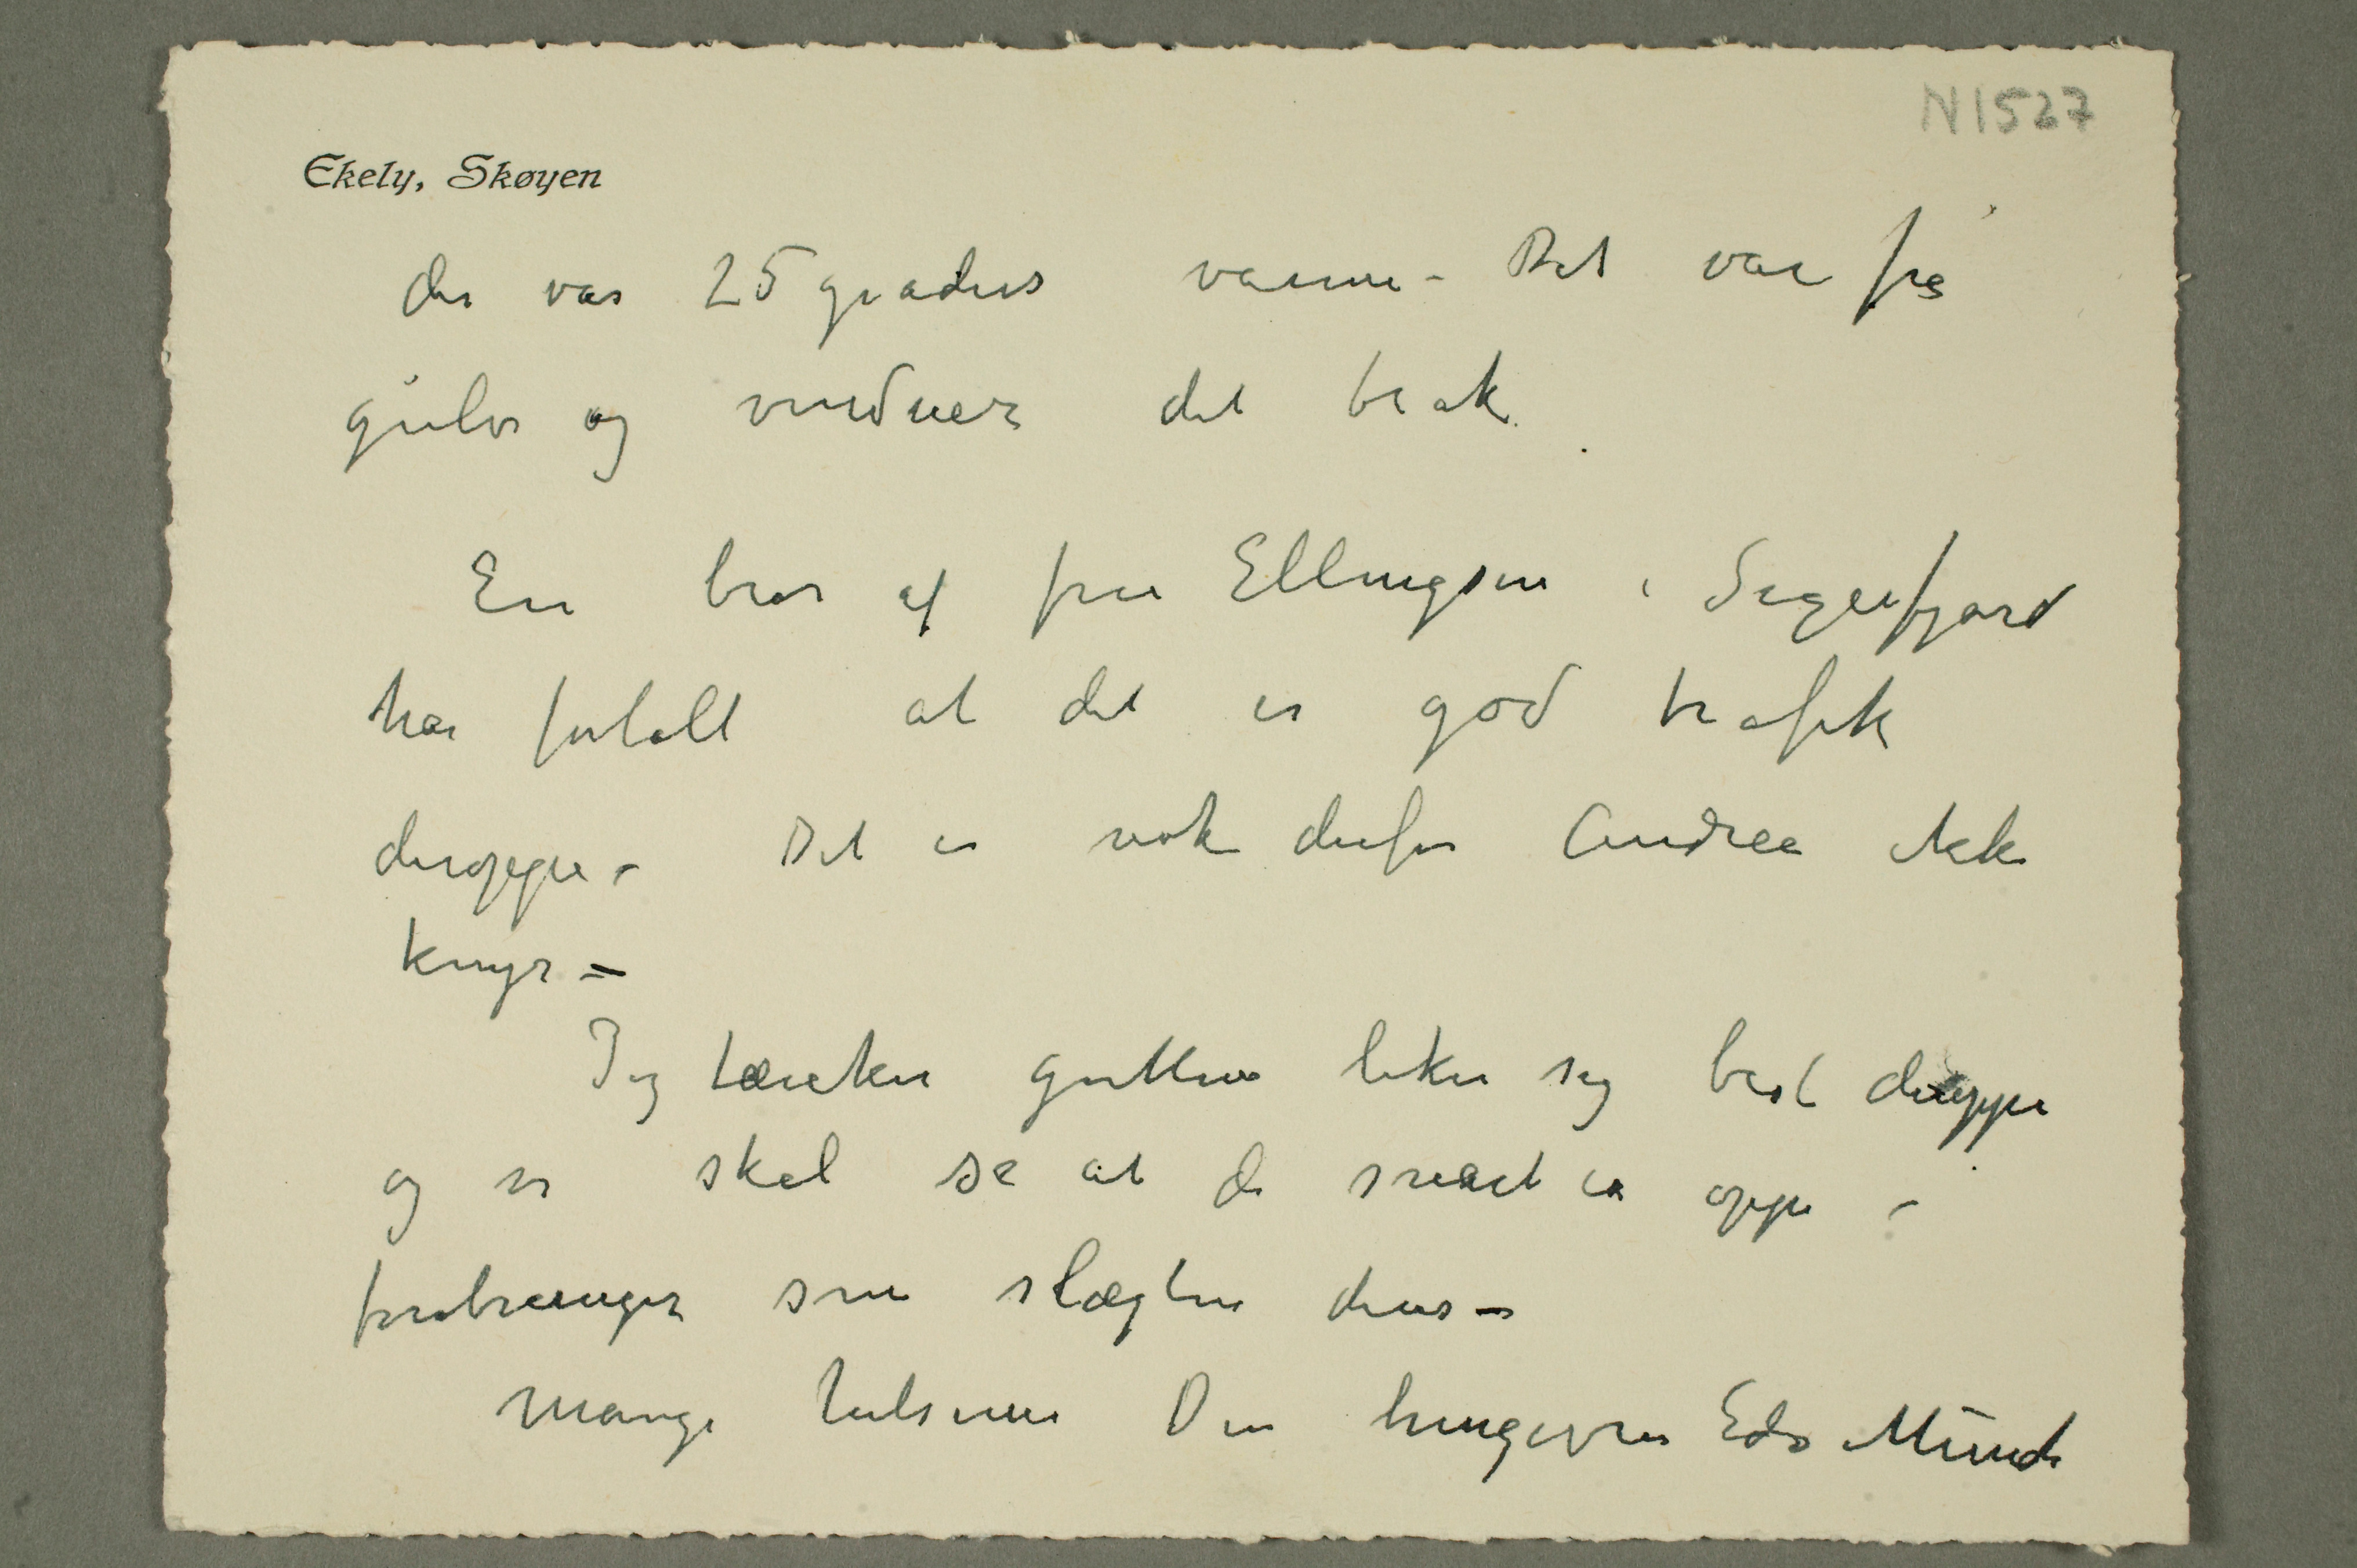 N 1527
Ekely, Skøyen
der var 25 graders varme – Det var fra
gulv og vinduer det trak.
En bror af fru Ellingsen i Sigerfjord
har fortalt at det er god trafik
deroppe – Det er nok derfor Andrea ikke
knyr –
Jeg tænker guttene liker sig best deroppe
og vi skal se at de snart er oppe i
forretninger som slægten deres –
Mange hilsener Din hengivne Edv Munch